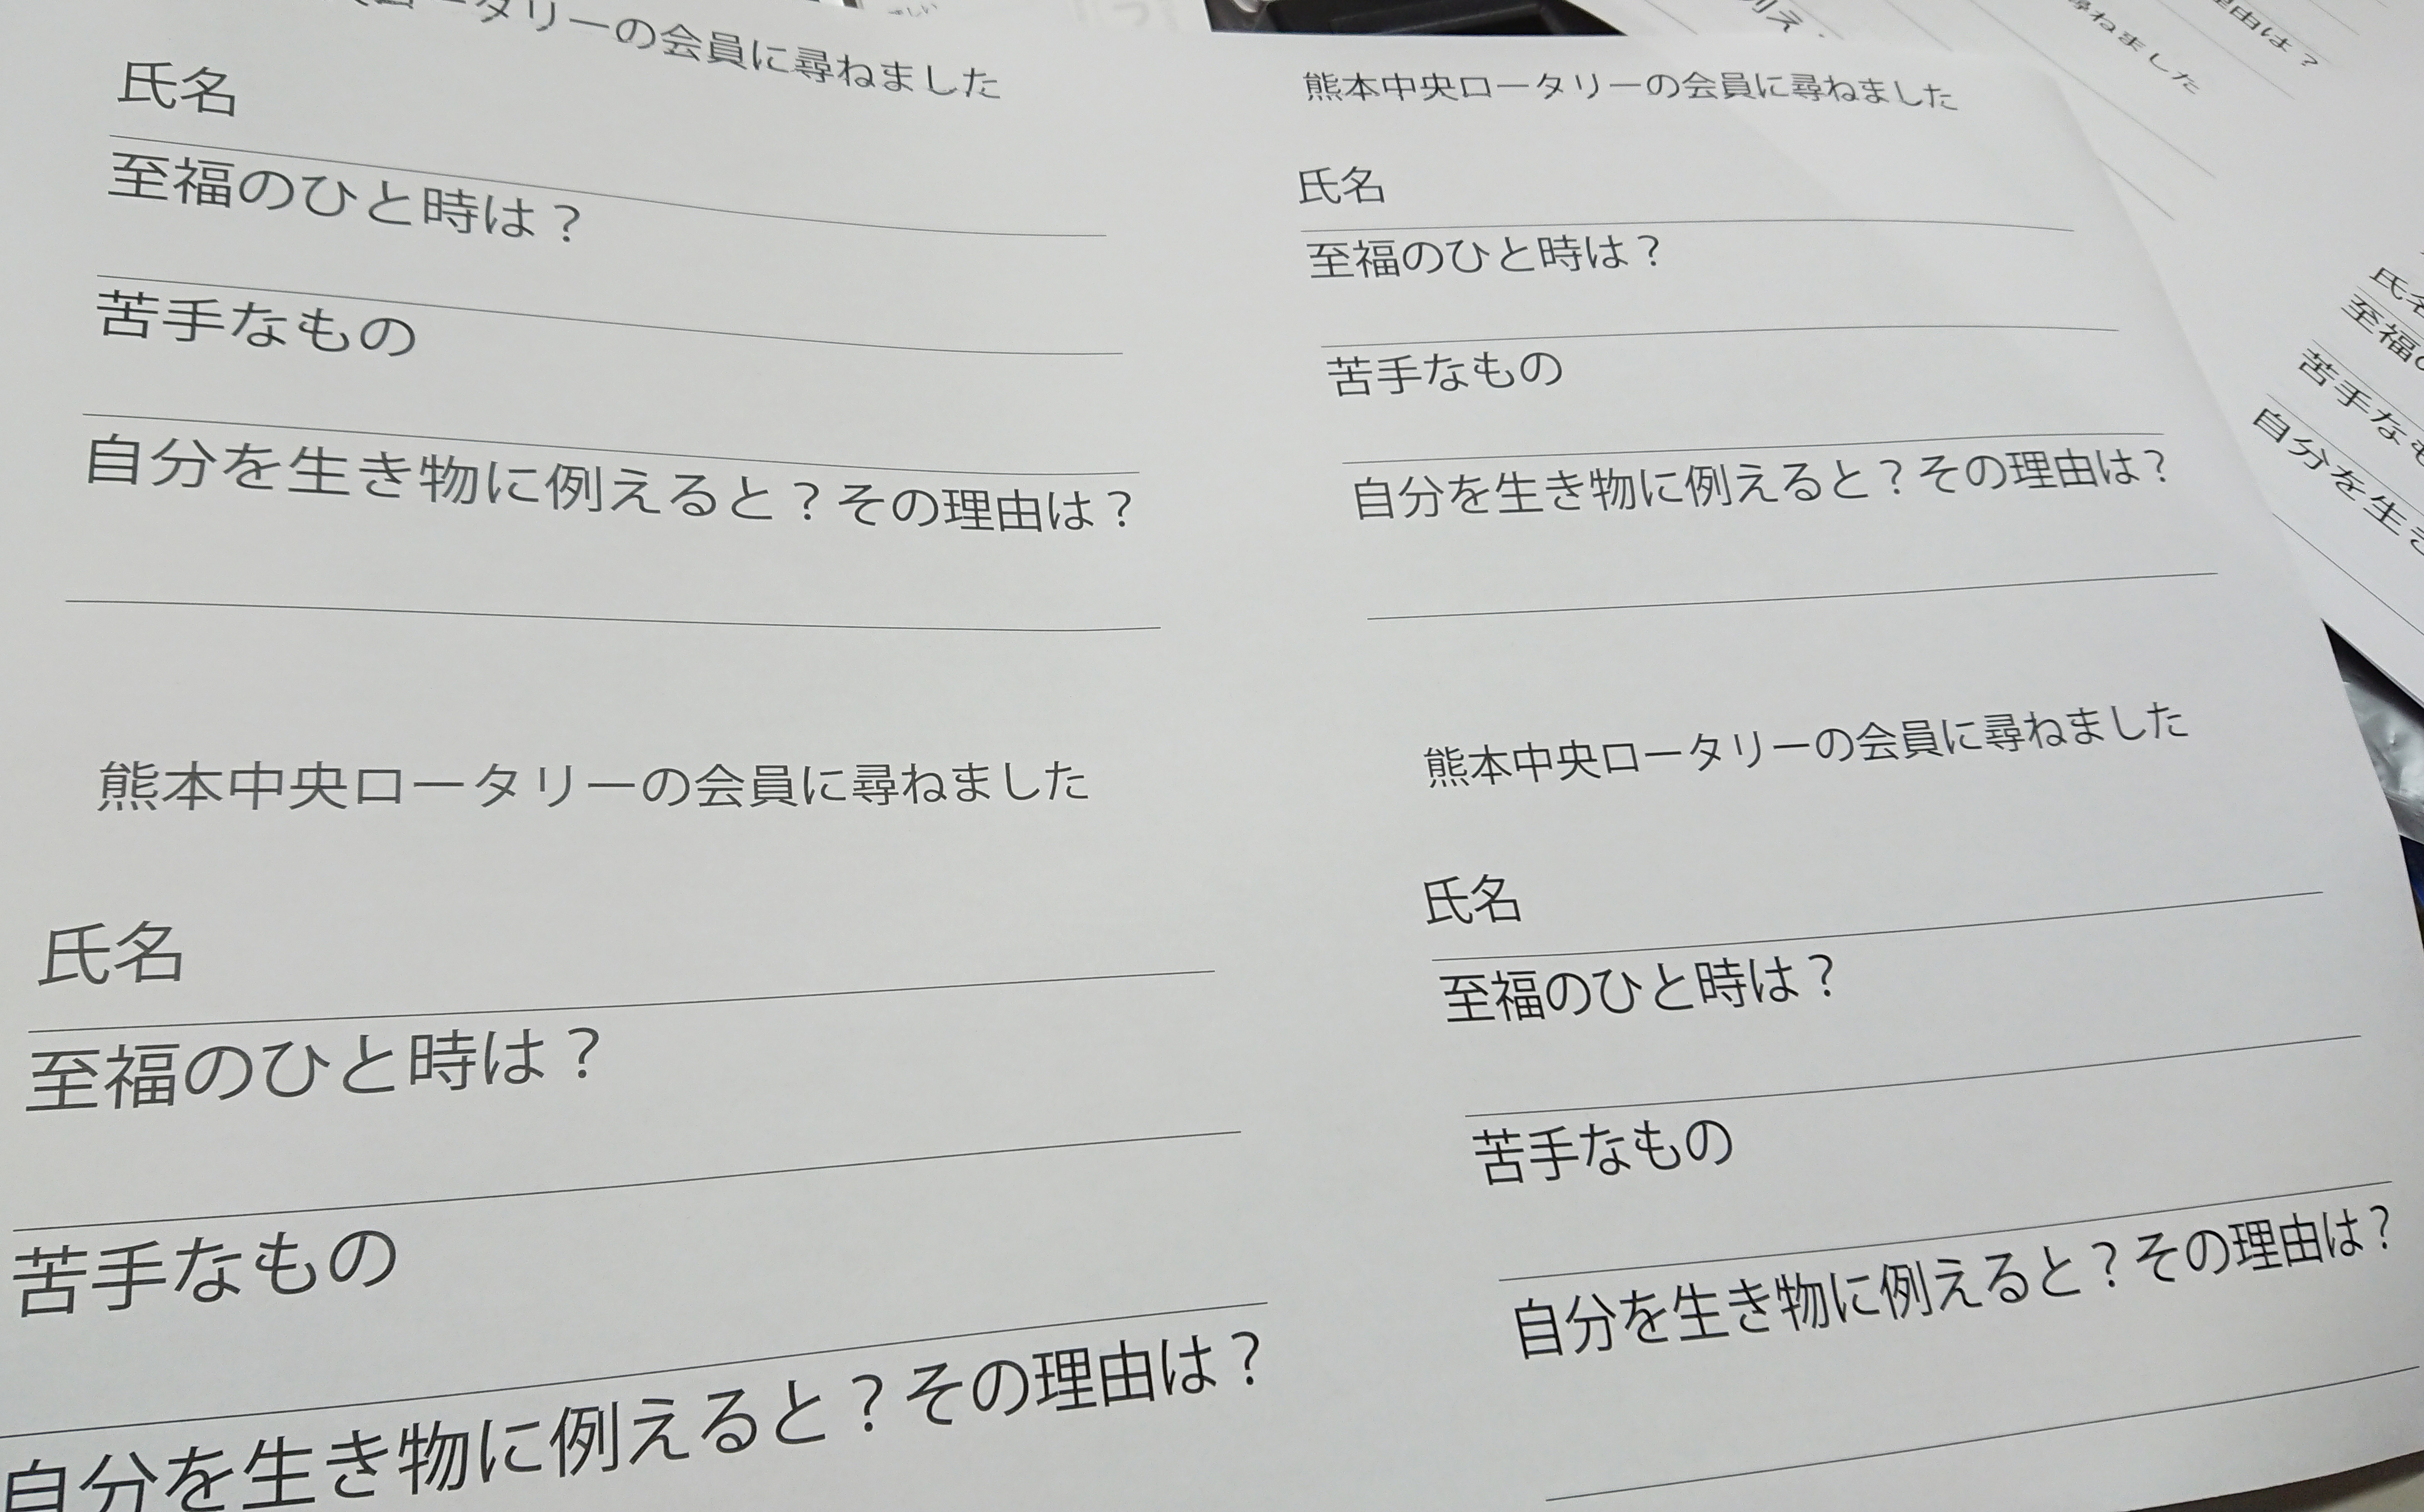 ータリーの会員に尋ねました
氏名
至福のひと時は？
苦手なもの
自分を生き物に例えると？その理由は？
熊本中央ロータリーの会員に尋ねました
氏名
至福のひと時は？
苦手なもの
自分を生き物に例えると？その理由は？
熊本中央ロータリーの会員に尋ねました
氏名
至福のひと時は？
苦手なもの
自分を生き物に例えると？その理由は？
熊本中央ロータリーの会員に尋ねました
氏名
至福のひと時は？
苦手なもの
自分を生き物に例えると？その理由は？
尋ねました
由は？
氏名
至福
苦手なも
自分を生き